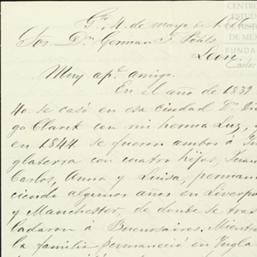 Gto. 4 de mayo de
Sor. Dn. German F. Pohls
Leon.
Muy apo. amigo.
En el año de 1839
40 se casó en esa ciudad Dn.
go Clarck con mi herma Luz, y
en 1844 se fueron ambos á In
glaterra con cuatro hijos, Juan
Carlos, Anna y Luisa, perman
ciendo algunos años en Liverpoo
y Manchester, de donde se tras
ladaron á Buenosaires. Mientra
la familia permaneció en Ingla
CENTRO
ESTUDI
DE MÉX
FUNDA
Carlos